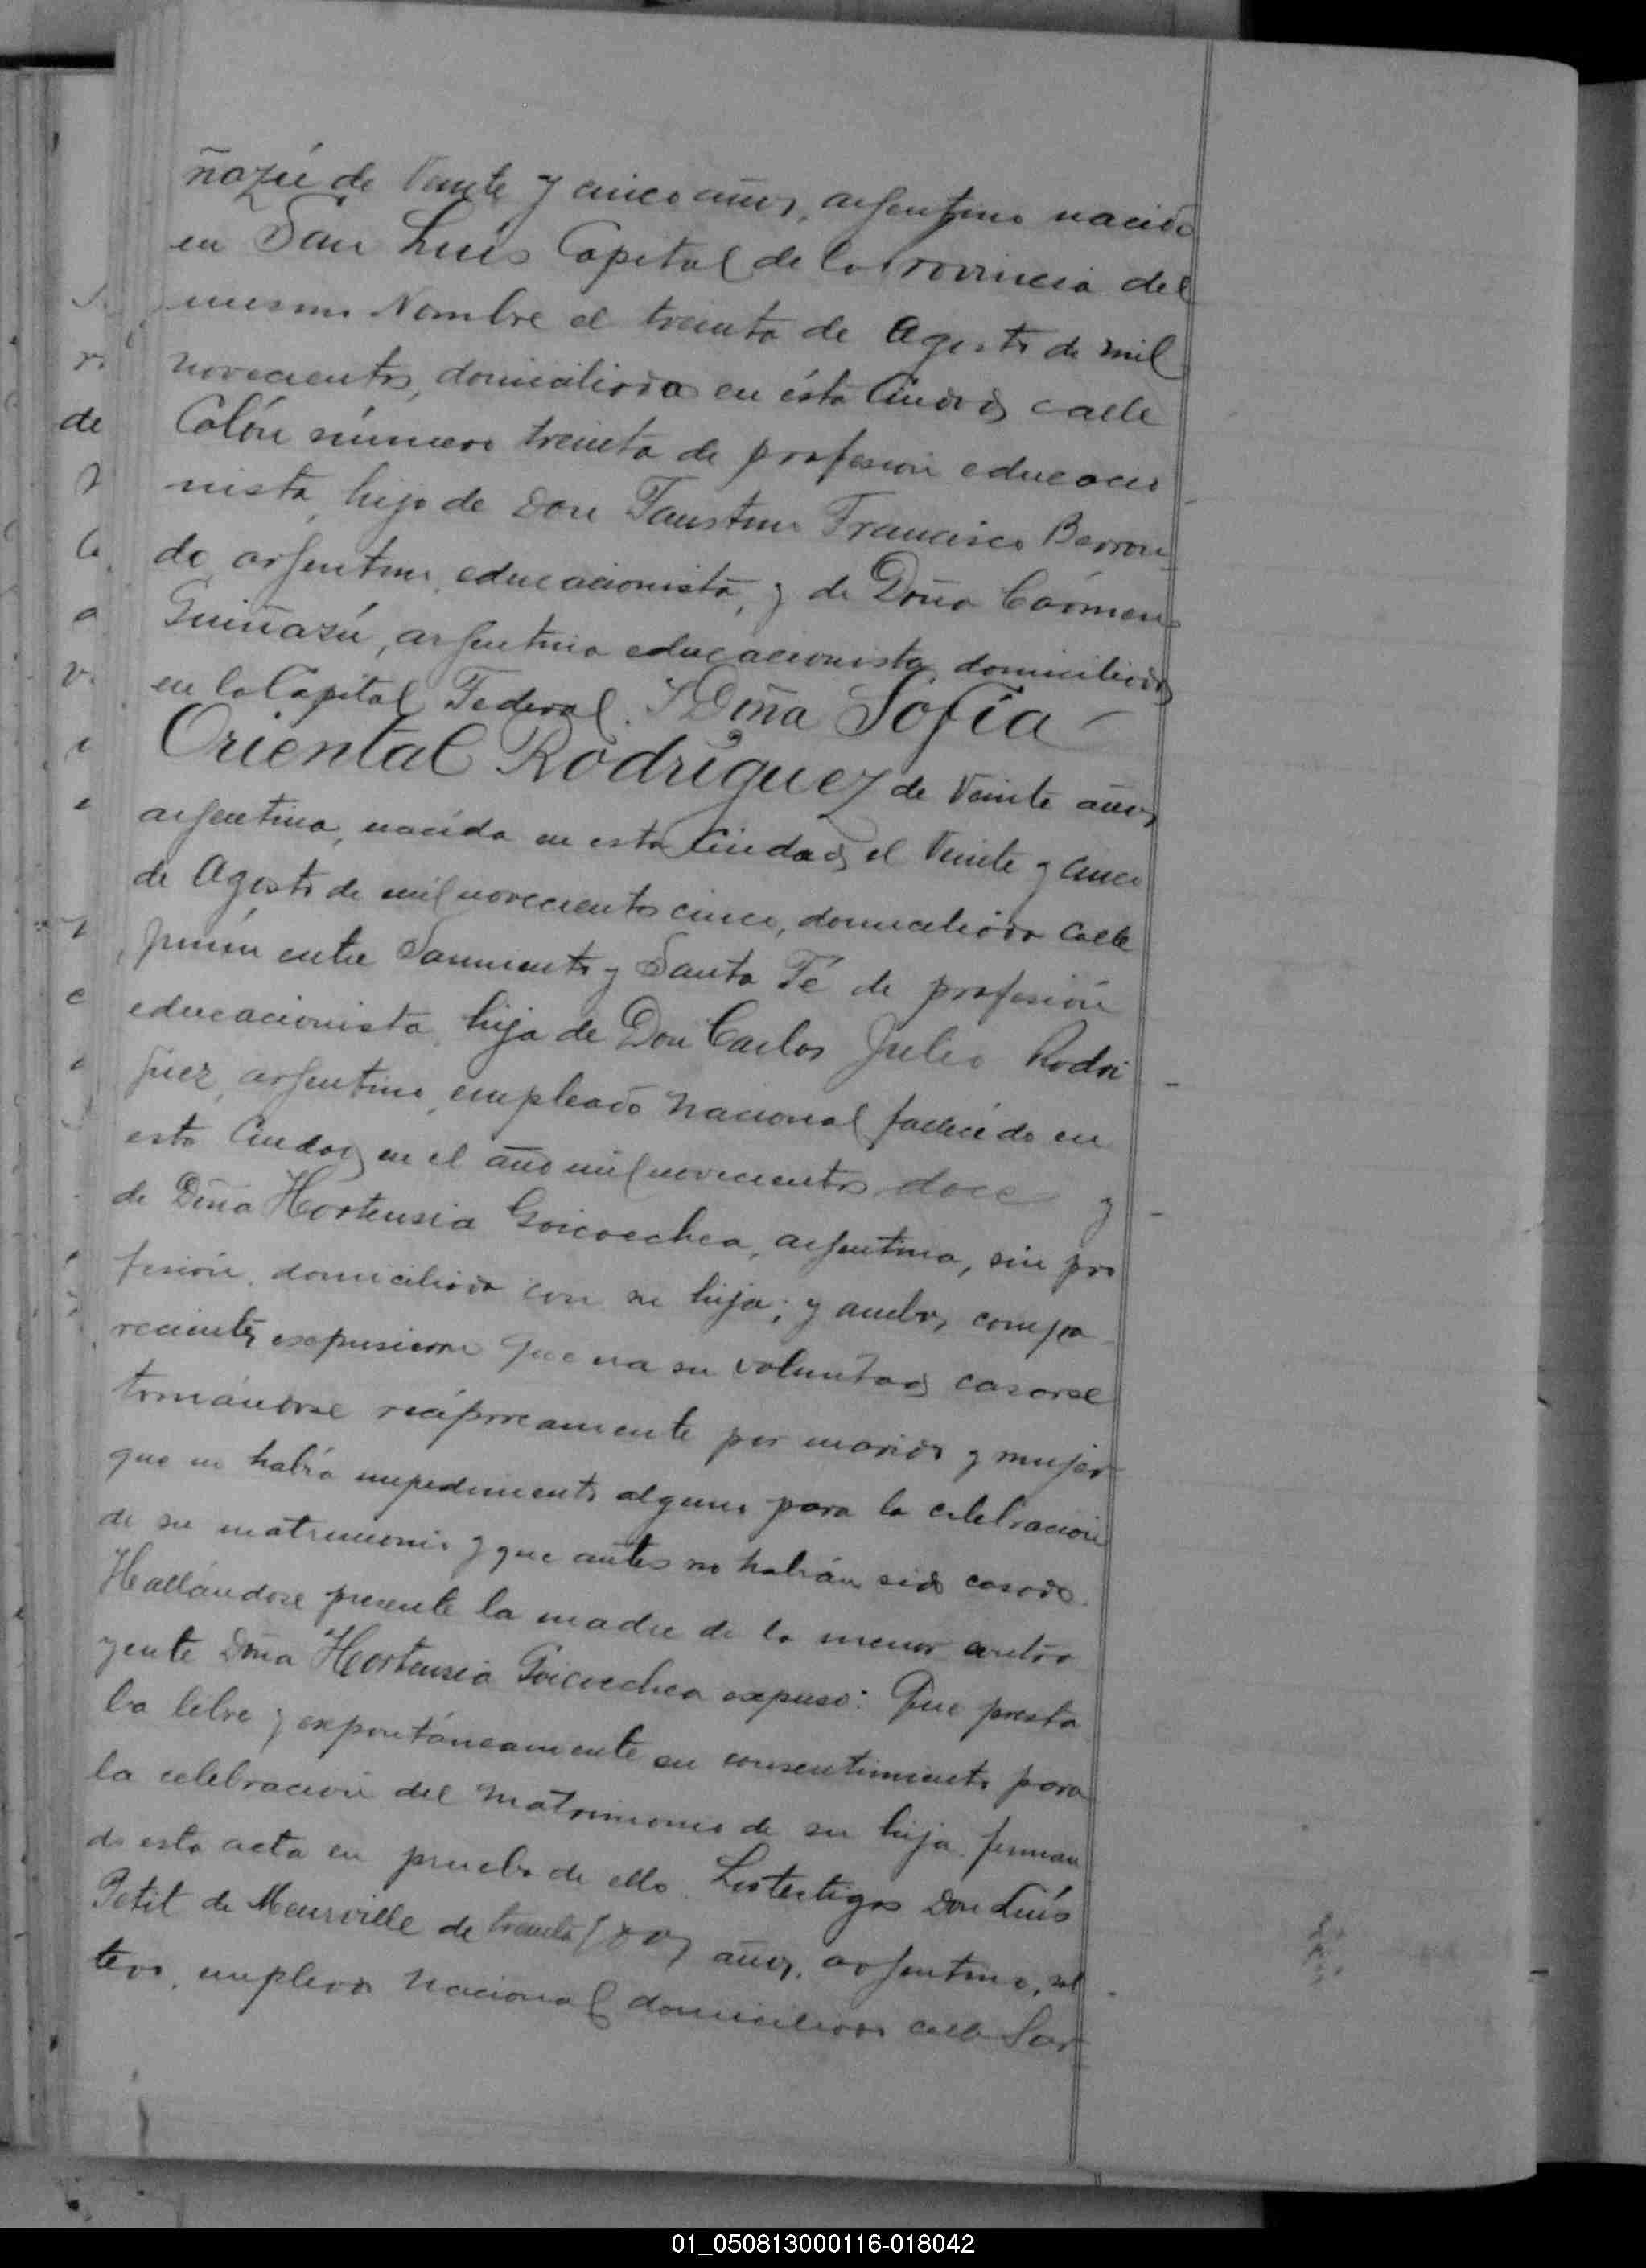 ñazú de Veinte y cinco años, argentino nacido
en San Luis Capital de la Provincia del
mismo Nombre el treinta de Agosto de mil
novecientos, domiciliado en ésta Ciudad calle
Colón número treinta de profesión educacio
nista, hijo de Don Faustino Francisco Berron
do, argentino, educacionista, y de Doña Cármen
Guiñazú, argentina educacionista, domiciliados
en la Capital Federal. Y Doña Sofía
Oriental Rodríguez de Veinte años
argentina, nacida en esta Ciudad, el Veinte y cinco
de Agosto de mil novecientos cinco, domiciliada calle
Junín entre Sarmiento y Santa Fé de profesión
educacionista, hija de Don Carlos Julio Rodrí
guez, argentino, empleado Nacional fallecido en
esta Ciudad en el año mil novecientos doce y
de Doña Hortensia Goicoechea, argentina, sin pro
fesión, domiciliada con su hija; y ambos compa
recientes expusieron que era su voluntad casarse
tomándose recíprocamente por marido y mujer
que no había impedimento alguno para la celebración
de su matrimonio y que antes no habían sido casados.
Hallándose presente la madre de la menor contra
yente Doña Hortensia Goicoechea expuso: Que presta
ba libre y expontáneamente su consentimiento para
la celebración del Matrimonio de su hija, firman
do esta acta en prueba de ello. Los testigos Don Luís
Petit de Meurville de treinta y dos años, argentino, sol
tero, empleado Nacional domiciliado calle Sar
de
01_050813000116-018042